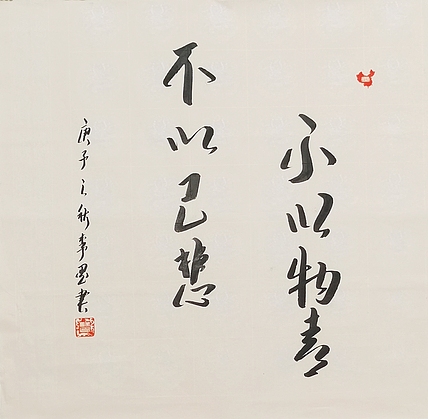 不以物喜
不以己悲
庚子之秋李墨书